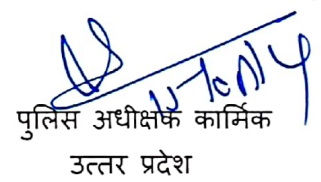 पुलिस अधीक्षक कार्मिक
उत्तर प्रदेश